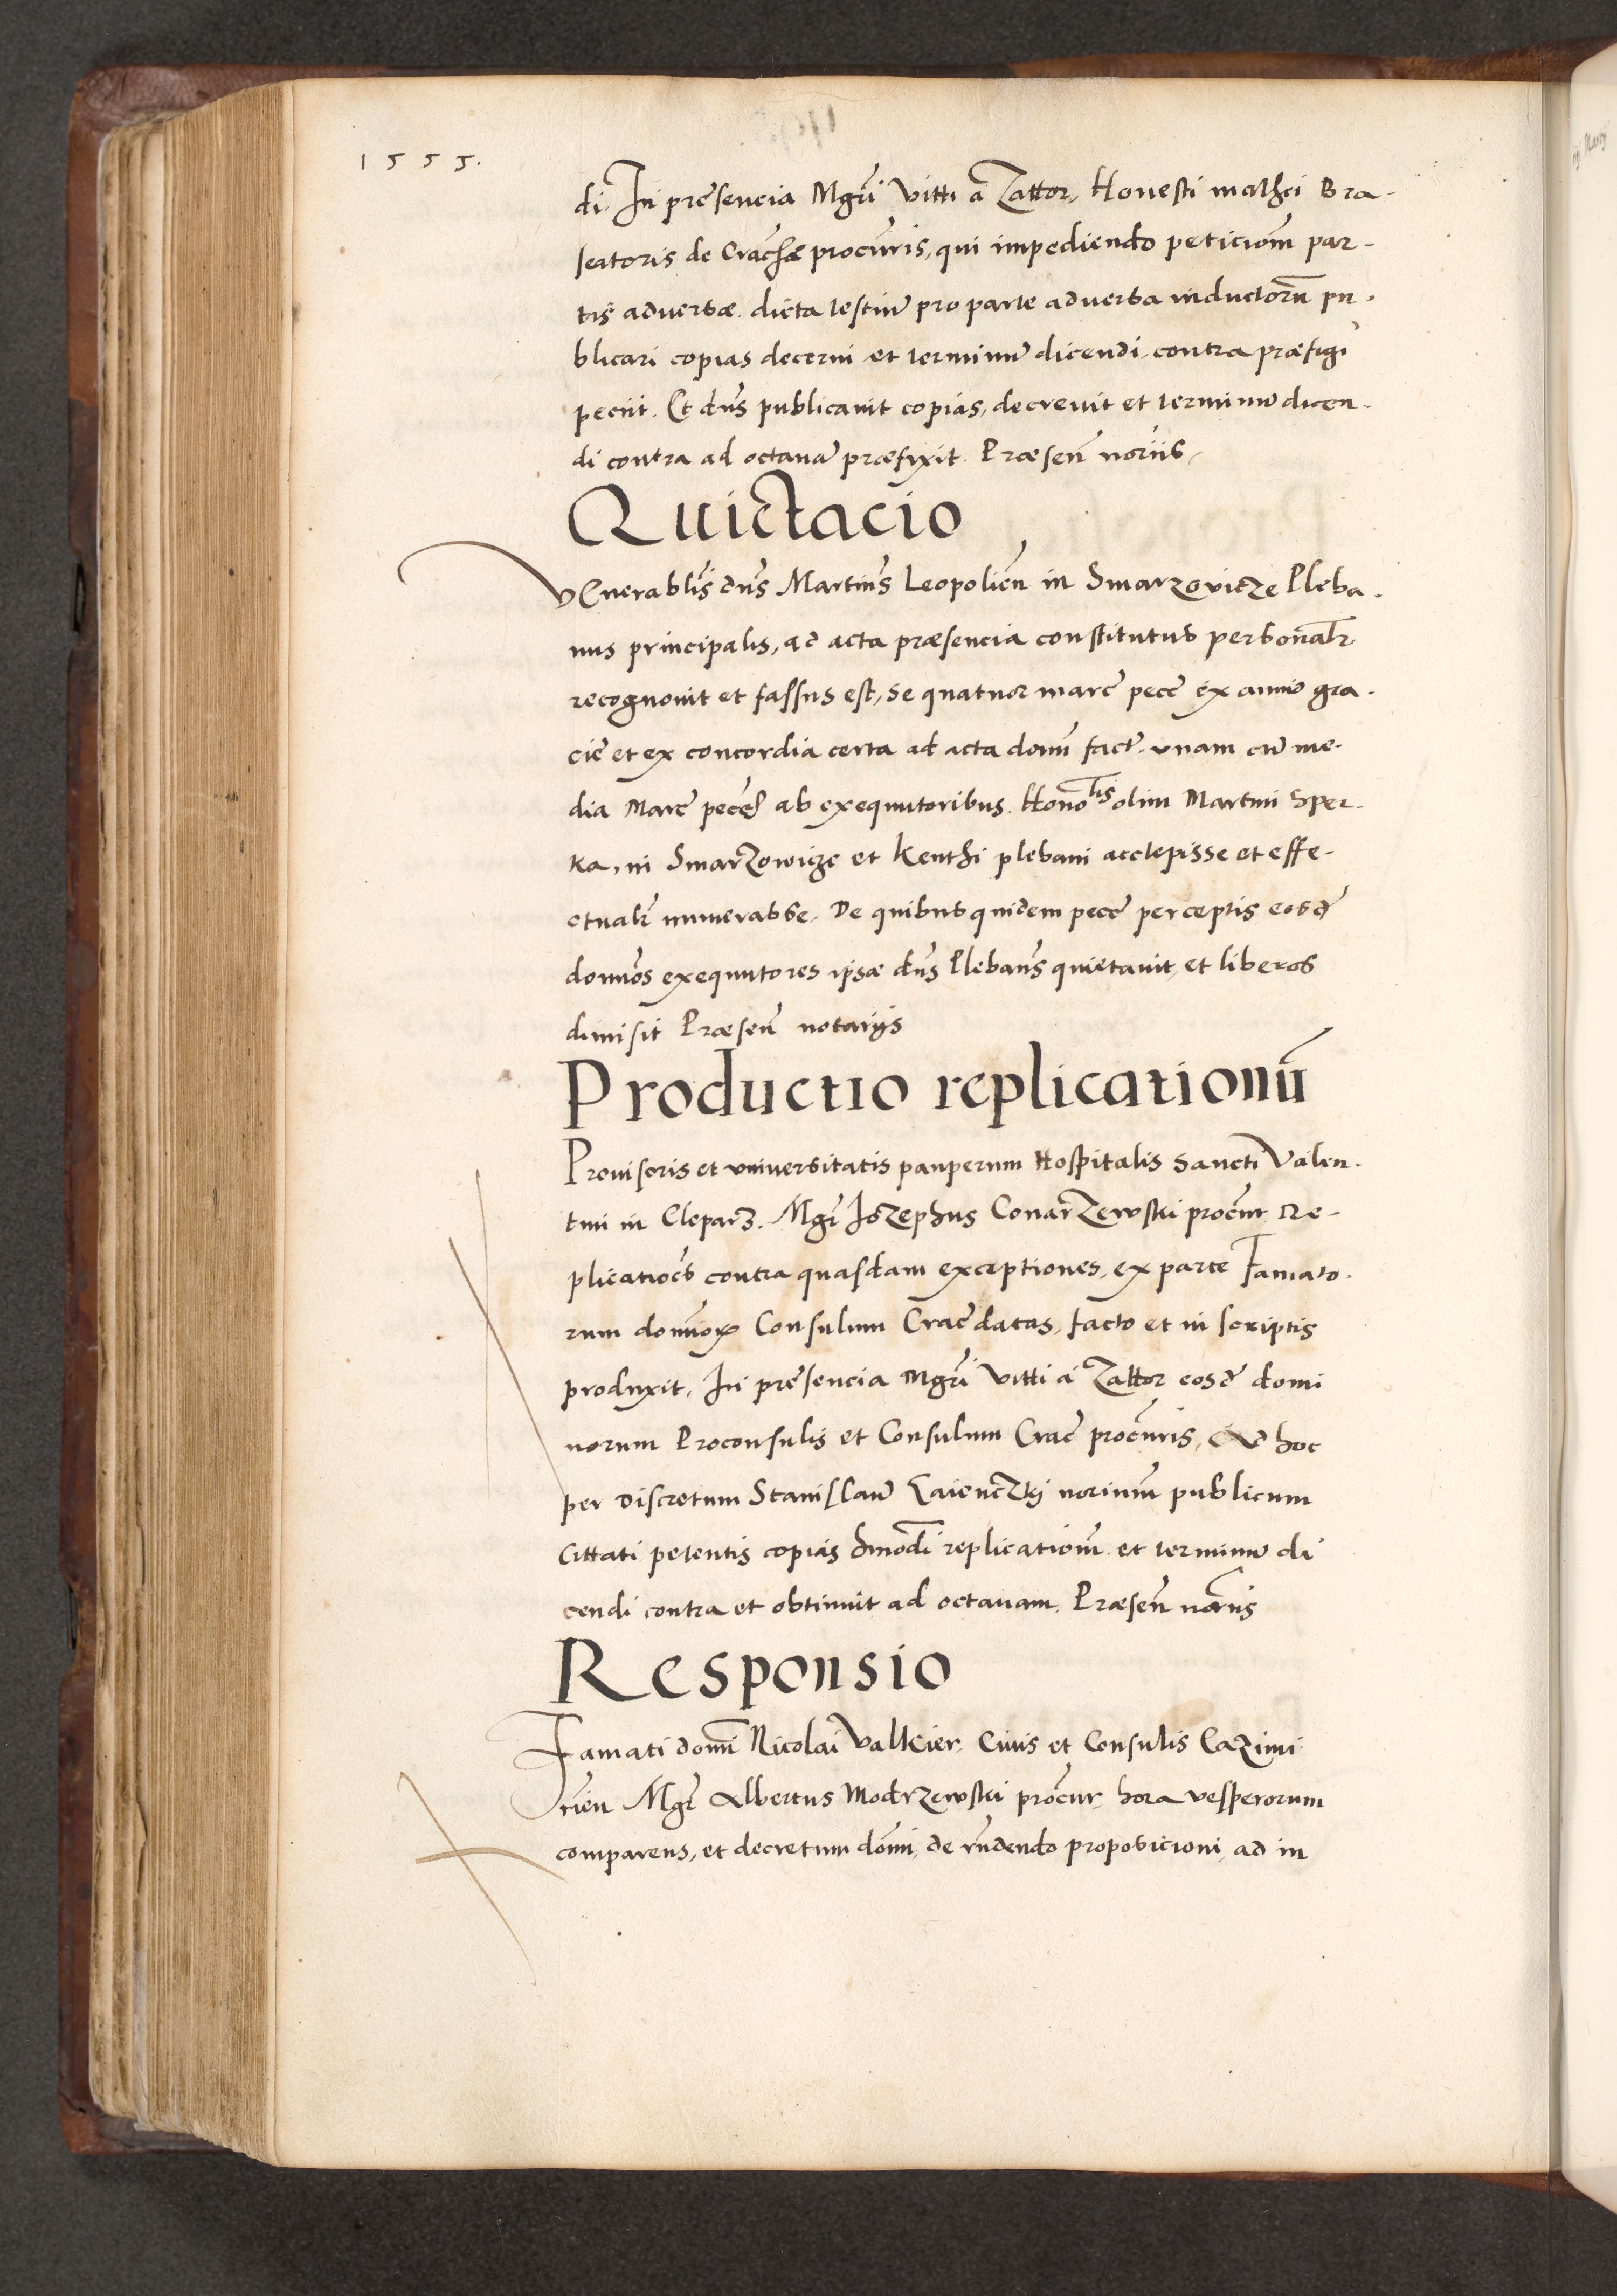 1555.
di. In presencia Mgri Vitti a Zattor, Honesti mathei Bra-
seatoris de Crac procuris, qui impediendo peticiom par-
tis adversae. dicta testium pro parte adversa inductorum pu-
blicari copias decerni et terminum dicendi contra praefigi
peciit. Et dns publicavit copias, decrevit et terminum dicen-
di contra ad octavam praefixit. Praesen noriis.
Quictacio
Venerablis dns Martinus Leopolien in Smarzovicze Pleba-
nus principalis, ad acta praesencia constitutus personalr
recognovit et fassus est, se quatuor marc pecc ex anno gra-
cie et ex concordia certa ad acta domi fact. unam cum me-
dia Marc pecc ab exequutoribus. Honolis olim Martini Sper-
ka, in Smarzowicze et Kenthi plebani accepisse et effe-
ctualr numerasse. De quibus quidem pecc perceptis eosdem
domios exequutores ipsae dns Plebanus quietavit, et liberos
dimisit Praesen notariis
Productio replicationum
Provisoris et universitatis pauperum Hospitalis Sancti Valen-
tini in Clepar3. Mgr Iozephus Conarzewski procur Re-
plicatioes contra quasdam exceptiones, ex parte Famato-
rum dominorum Consulum Crac datas, facto et in scriptis
produxit, In presencia Mgri Vitti a Zattor eosd domi
norum Proconsulis et Consulum Crac procuris, Ad hoc
per discretum Stanislaum Zaienczki norium publicum
Cittati petentis copias hmodi replicationum et terminum di
cendi contra et obtinuit ad octavam. Praesen noriis
Responsio
Famati domi Nicolai Valkier, Civis et Consulis Cazimi
rien Mgr Albertus Modrzewski procur, hora vesperorum
comparens, et decretum domi, de rndendo proposicioni, ad in